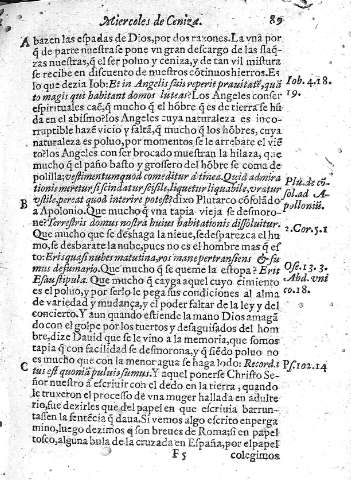 Miercoles de Ceniza. 89
A bazen las espadas de Dios, por dos razones. La vna por
q̃ de parte nuestra se pone vn gran descargo de las flaq̃-
zas nuestras, q̃ el ser poluo y ceniza, y de tan vil mistura
se recibe en discuento de nuestros cõtinuos hierros. Es
lo que dezia Iob: Et in Angelis suis reperit prauitatẽ, quã
to magis qui habitant domos luteas? Los Angeles con ser
Iob. 4. 18.
19.
espirituales caẽ, q̃ mucho q̃ el hõbre q̃ es de tierra se hũ
da en el abismo? los Angeles cuya naturaleza es inco-
rruptible hazẽ vicio y faltã, q̃ mucho q̃ los hõbres, cuya
naturaleza es poluo, por momentos se le arrebate el viẽ
to? los Angeles con ser brocado muestran la hilaza, que
mucho q̃ el paño basto y grossero del hõbre se coma de
polilla; vestimentum quod comeditur à tinea. Quid ad mira
tionis meretur si scindatur scisile, liquetur liquabile, vratur
vstile, pereat quod interire potest? dixo Plutarco cõsolãdo
Plu. de cõ-
sol. ad A-
pollonĩũ.
B a Apolonio. Que mucho q̃ vna tapia vieja se desmoro-
ne? Terrestris domus nostra huius habitationis dissoluitur.
2. Cor. 5. 1
Que mucho que se deshaga la nieue, se desparezca el hu
mo, se desbarate la nube, pues no es el hombre mas q̃ es
to: Eris quasi nubes matutina, ros mane pertransiens & fu
mus de fumario. Que mucho q̃ se queme la estopa? Erit
Ose. 13. 3.
Abd. vni
co. 18.
Esau stipula. Que mucho q̃ cayga aquel cuyo cimiento
es el poluo, y por serlo le pega sus condiciones al alma
de variedad y mudança, y el poder faltar de la ley y del
concierto. Y aun quando estiende la mano Dios amagã
do con el golpe por los tuertos y desaguisados del hom
bre, dize Dauid que se le vino a la memoria, que somos
tapia q̃ con facilidad se desmorona, y q̃ siẽdo poluo no
es mucho que con la menor agua se haga lodo: Record.s
C tus est quoniã puluis sumus. Y aquel ponerse Christo Se-
Ps. 102. 14
ñor nuestro à escriuir con el dedo en la tierra, quando
le truxeron el processo de vna muger hallada en adulte
rio, fue dezirles que del papel en que escriuia barrun-
tassen la sentẽcia q̃ daua. Si vemos algo escrito en perga
mino, luego dezimos q̃ son breues de Roma; si en papel
tosco, alguna bula de la cruzada en España, por el papel
F 5 colegimos